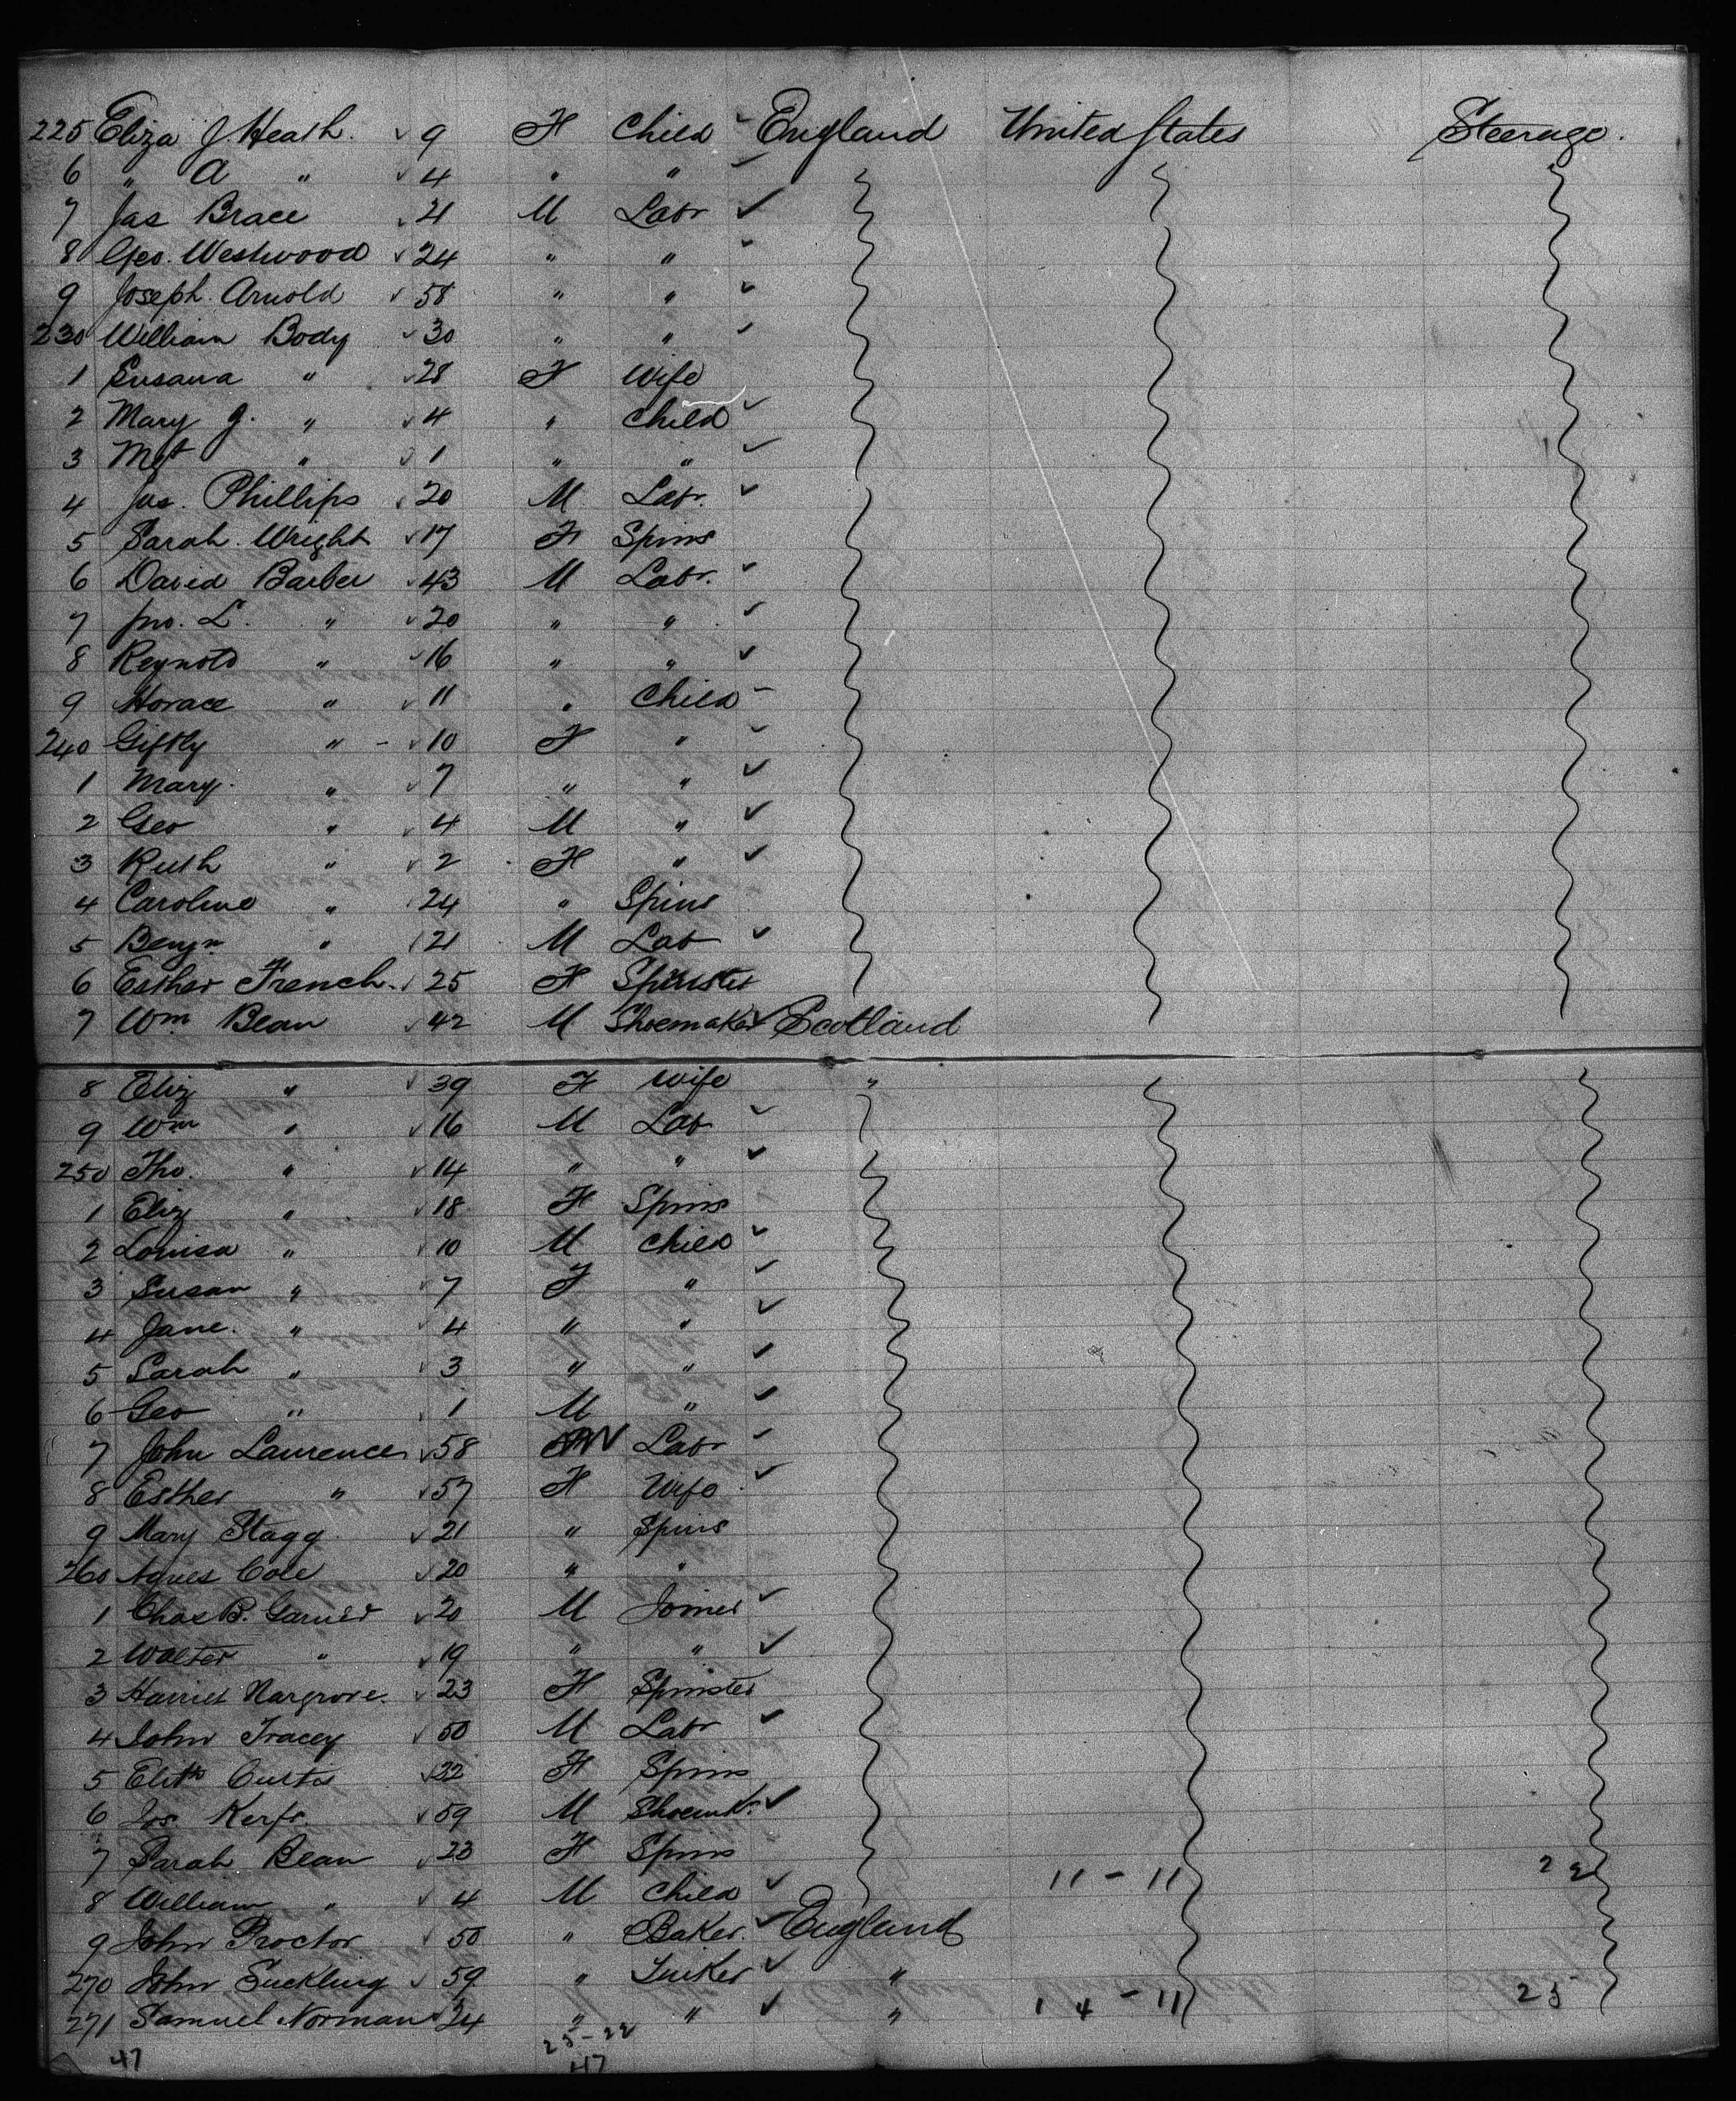 225 Eliza J. Heath. 9 F Child England United States Steerage.
6 " A " 4 " "
7 Jas Brace 21 M Labr
8 Geo. Westwood 24 " "
9 Joseph Arnold 58 " "
230 William Body 30 " "
1 Susana " 28 F Wife
2 Mary J. " 4 " Child
3 Mgt " 1 " "
4 Jas. Phillips 20 M Labr.
5 Sarah Wright 17 F Spins
6 David Barber 43 M Labr.
7 Jno. L. " 20 " "
8 Reynold " 16 " "
9 Horace " 11 " Child
240 " 10 F "
1 Mary. " 7 " "
2 Geo " 4 M "
3 Ruth " 2 F "
4 Caroline " 24 " Spins
5 Benjn " 21 M Lab
6 Esther French 25 F Spinster
7 Wm Bean 42 M Shoemaker Scotland
8 Eliz " 39 F Wife "
9 Wm " 16 M Lab
250 Tho. " 14 " "
1 Eliz " 18 F Spins
2 Louisa " 10 M Child
3 Susan " 7 F "
4 Jane. " 4 " "
5 Sarah " 3 " "
6 Geo " 1 M "
7 John Laurence 58 M Labr
8 Esther " 57 F Wife
9 Mary Stagg 21 " Spins
260 Agnes Cole 20 " "
1 Chas B. Garner 20 M Joiner
2 Walter " 19 " "
3 Harriet Hargrove. 23 F Spinster
4 John Tracey 50 M Labr
5 Elith Curtis 22 F Spins
6 Jos. 59 M Shoemkr.
7 Sarah Bean 23 F Spins
8 William " 4 M Child 11 - 11 22
9 John Proctor 50 " Baker. England
270 John Suckling 59 " "
271 Samuel Norman 24 " " " 14 - 11 25
47 25 - 22
47